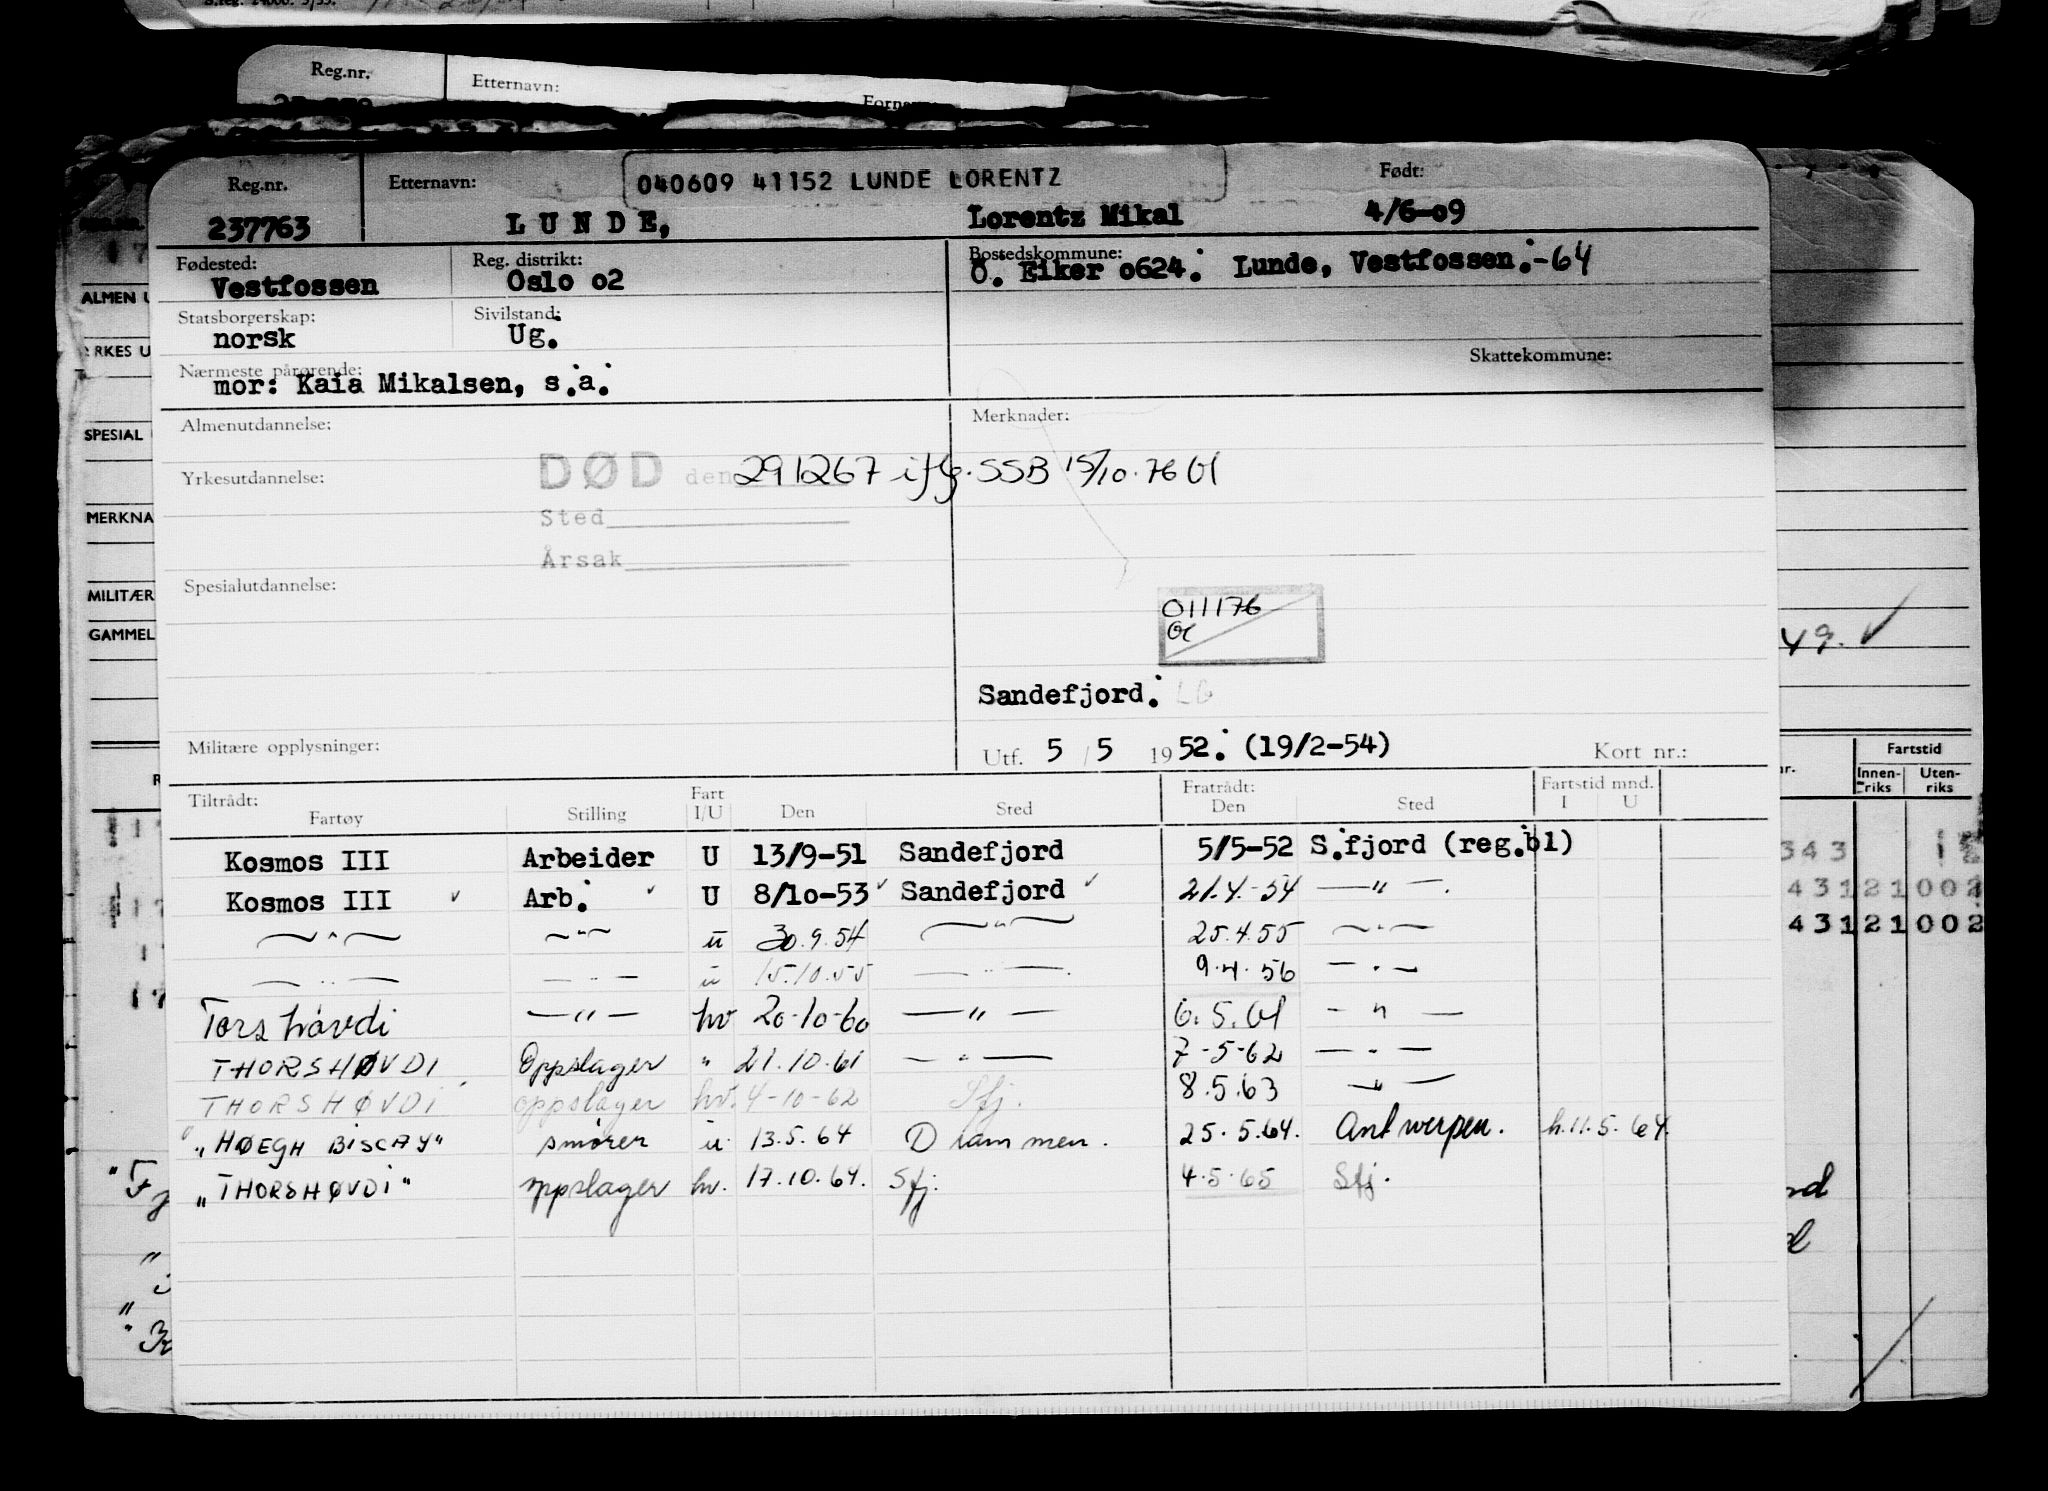 S.reg. 24000. 3/55.
Reg.nr. Etternavn:
040609 41152 LUNDE LORENTZ
Reg.nr. Etternavn: Født:
237763 LUNDE, Lorentz Mikal 4/6-09
Fødested: Reg. distrikt: Bostedskommune:
Vestfossen Oslo o2 Ö. Eiker o624. Lunde, Vestfossen.-64
Statsborgerskap: Sivilstand:
norsk Ug.
Nærmeste pårørende: Skattekommune:
mor: Kaia Mikalsen, s.a.
Almenutdannelse: Merknader:
Yrkesutdannelse: DØD den 291267 iflg. SSB 15/10.76 Gl
Sted
Årsak
Spesialutdannelse:
011176
Gl
Sandefjord. LG
Militære opplysninger: Utf. 5 / 5 1952. (19/2-54) Kort nr.:
Tiltrådt: Fart Fratrådt: Fartstid mnd.
Fartøy Stilling I/U Den Sted Den Sted I U
Kosmos III Arbeider U 13/9-51 Sandefjord 5/5-52 S.fjord (reg.bl)
Kosmos III Arb. U 8/10-53 Sandefjord 21.4.-54 — " —.
— " — — " — u 30.9.54 — " — 25.4.55 — " —
— " — — " — u 15.10.55 — " — 9.4.56 — " —
Torshøvdi — " — hv 20-10-60 — " — 6.5.61 — " —
THORSHØVDI Oppslager " 21.10.61 — " — 7-5-62 — " —
THORSHØVDI oppslager hv. 4-10-62 Sfj. 8.5.63 — " —
"HØEGH BISCAY" smører u. 13.5.64 Drammen. 25.5.64. Antwerpen. h.11.5.64.
"THORSHØVDI" oppslager hv. 17.10.64. Sfj. 4.5.65 Sfj.
ALMEN U
SPESIAL
MERKNA
MILITÆR
GAMMEL
49. ✓
Fartstid
Innenriks Utenriks
343 12
43121002
43121002